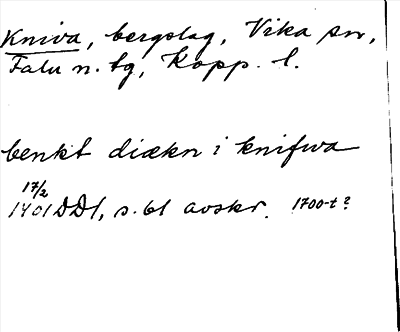 Kniva, bergslag, Vika sn,
Falu n. tg, Kopp. l.
benkt diækn i knifwa
17/2
1401 DD1, s. 61 avskr. 1700-t?